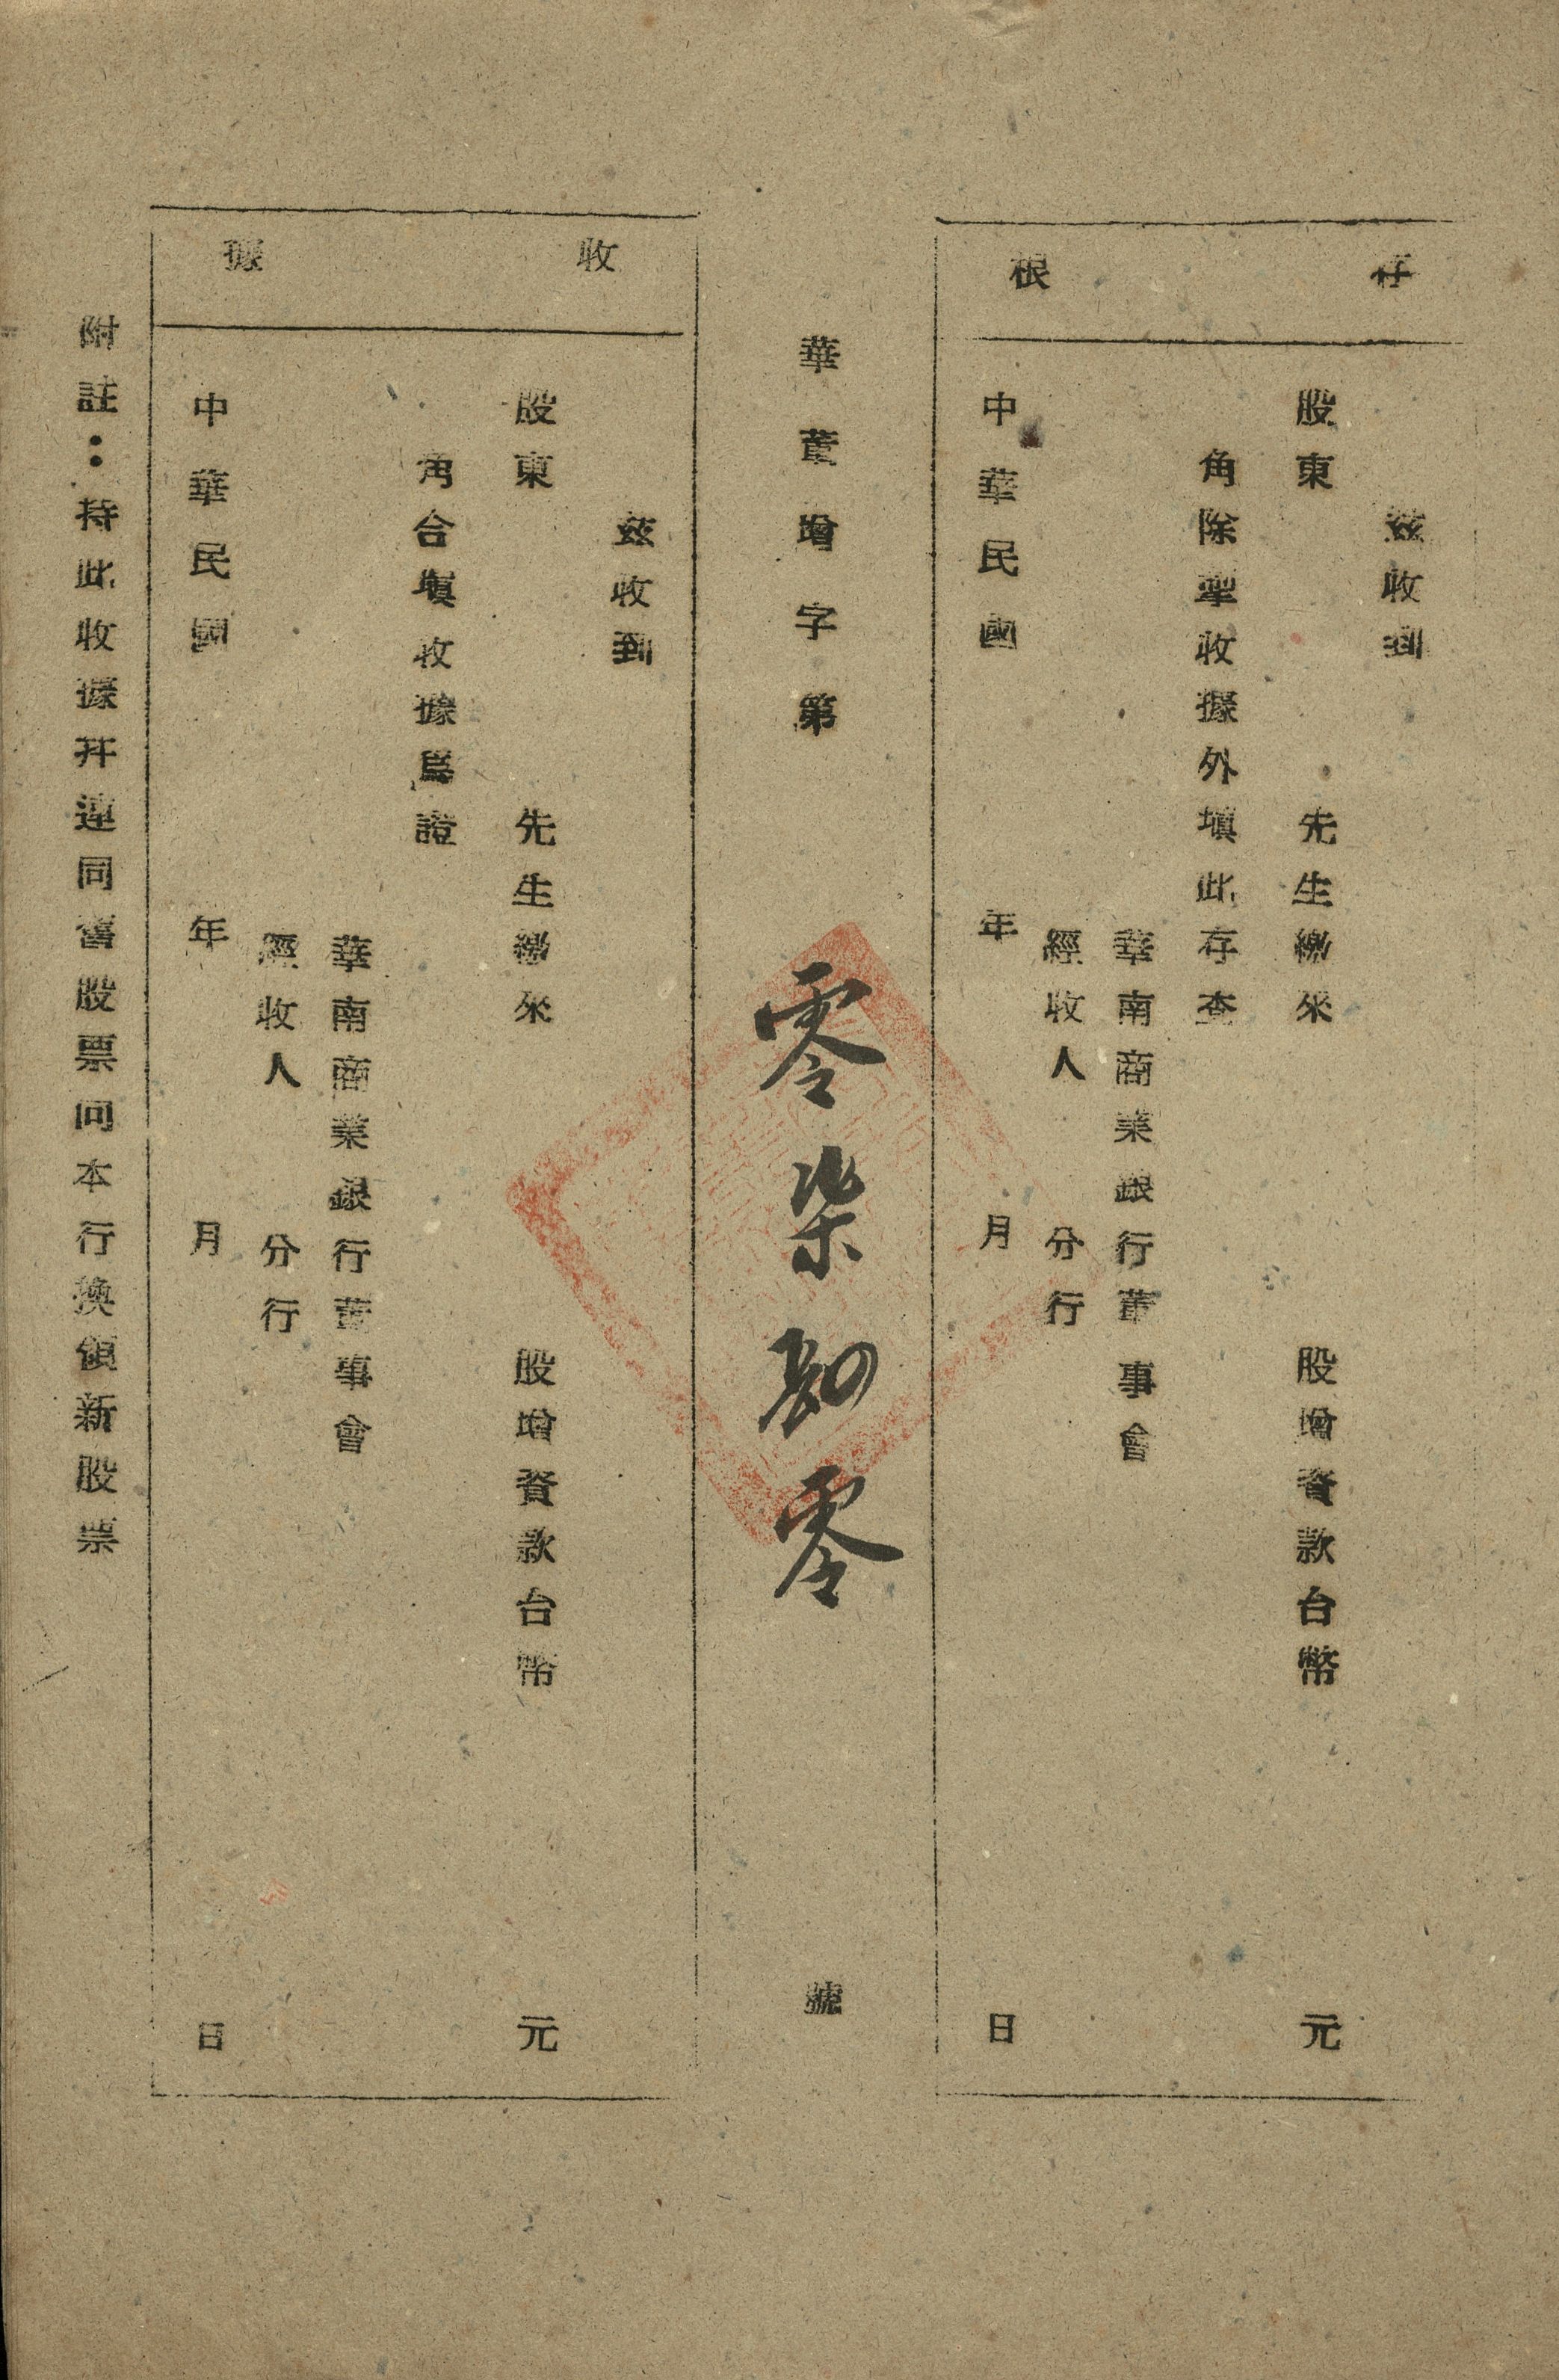 存根
茲收到
股東　先生繳來　股增資款台幣　元
角除掣收據外塡此存查
華南商業銀行董事會
經收人　分行
中華民國　年　月　日
華董增字第零柒　零號
收據
茲收到
股東　先生繳來　股增資款台幣　元
角合塡收據爲證
華南商業銀行董事會
經收人　分行
中華民國　年　月　日
附註：持此收據幷連同舊股票向本行換領新股票